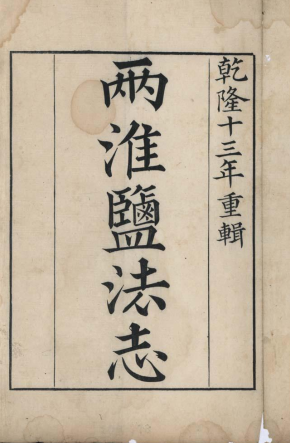 乾隆十三年重輯
兩淮鹽法志